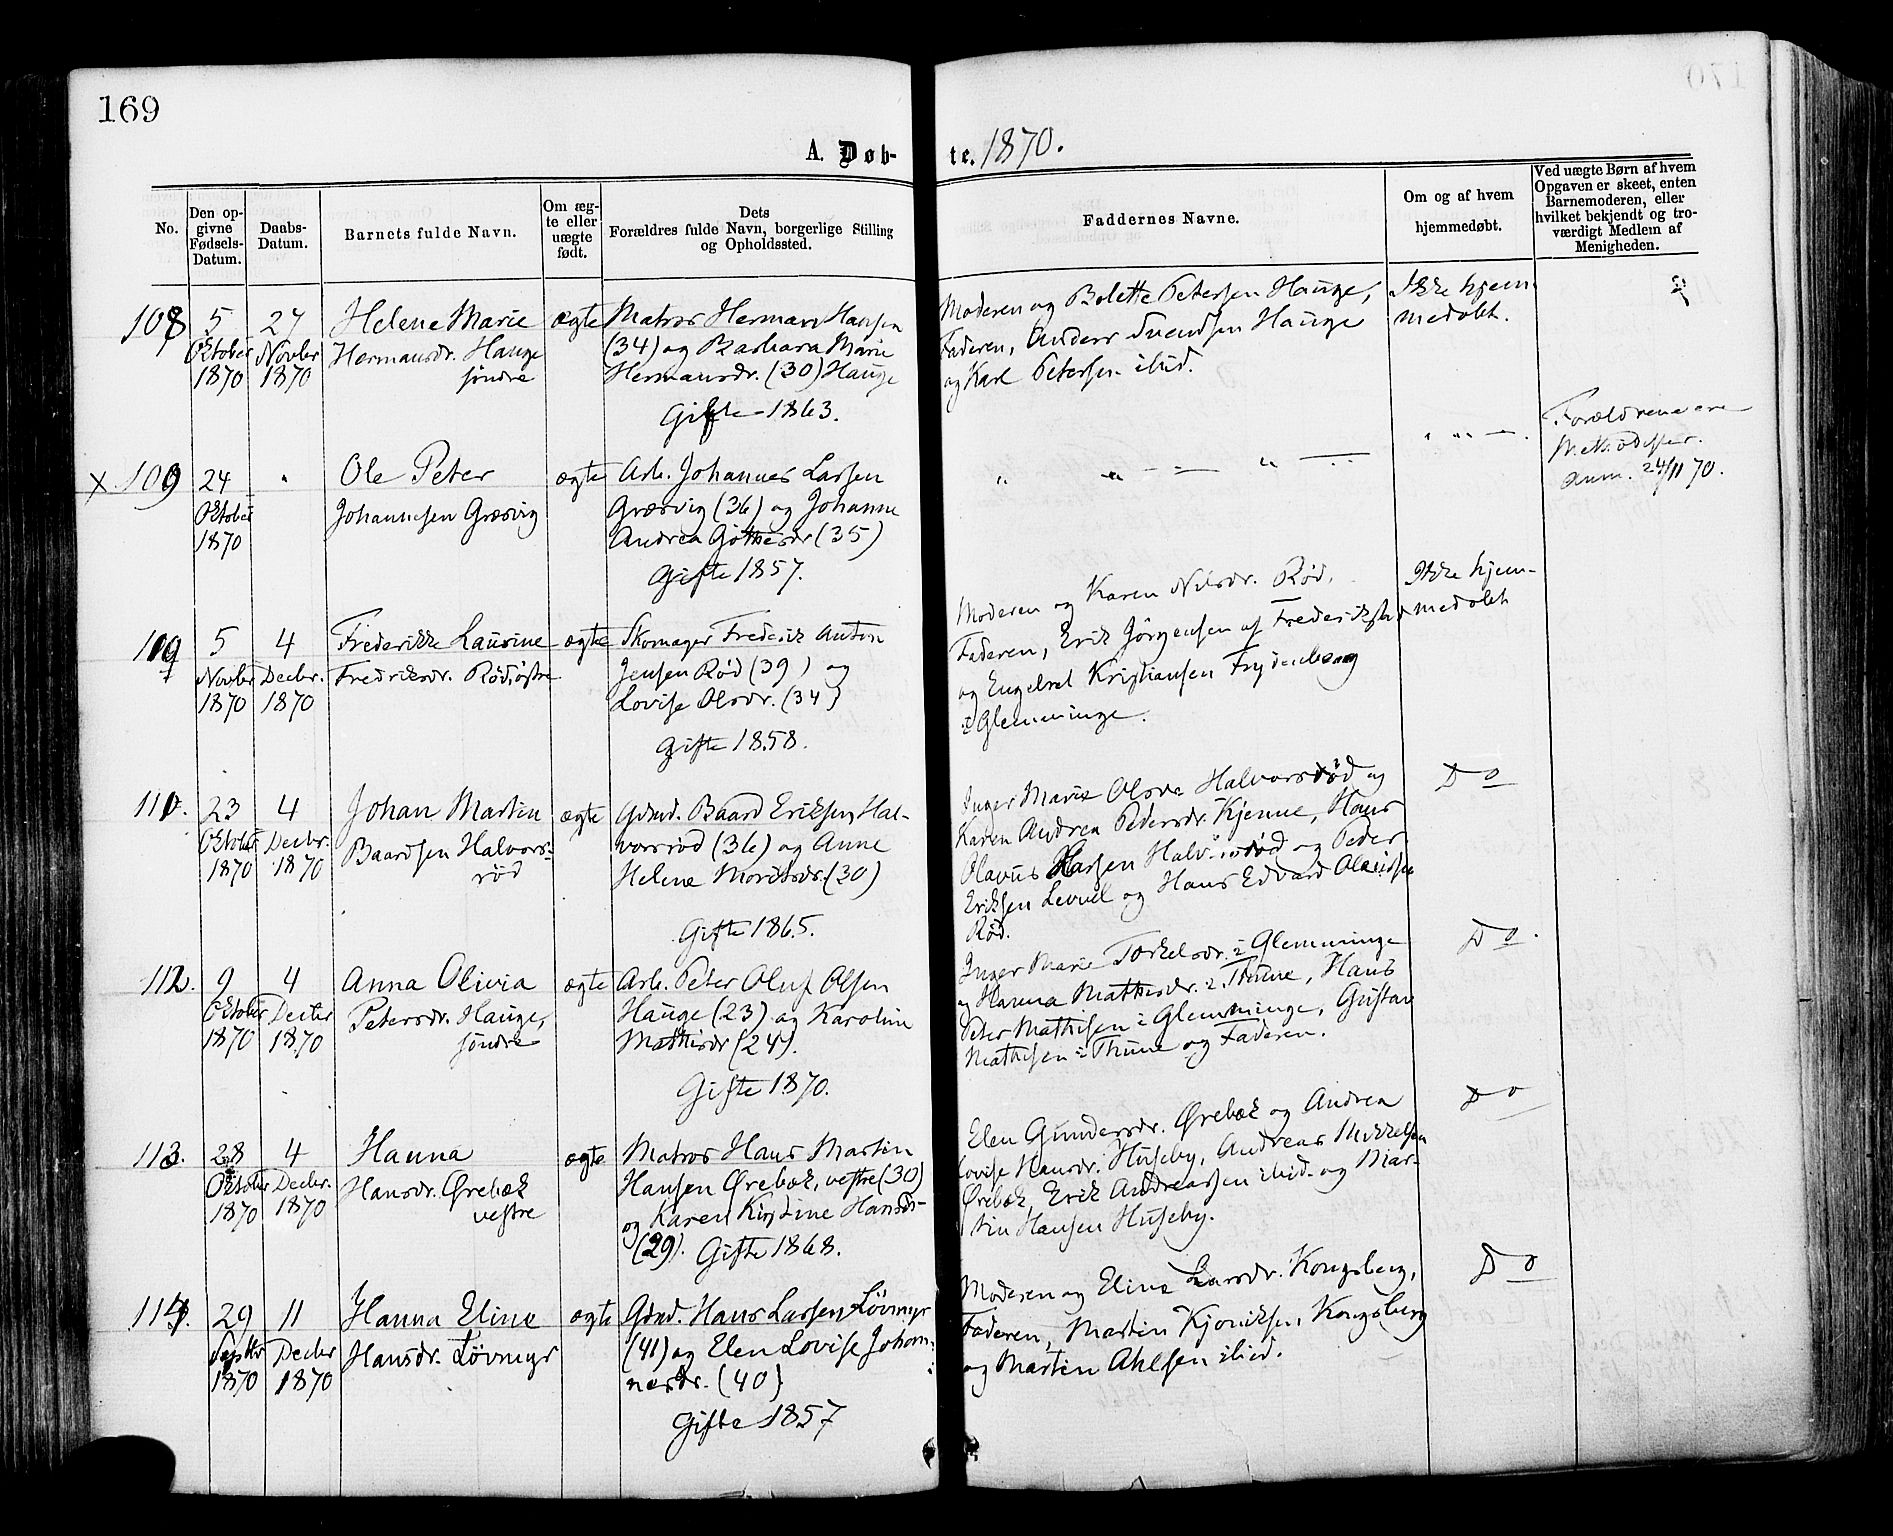 169
A. Døb-
te. 1870.
No.
Den op-
givne
Fødsels-
Datum.
Daabs-
Datum.
Barnets fulde Navn.
Om æg-
te eller
uægte
født.
Dets
Forældres fulde Navn, borgerlige Stilling
og Opholdssted.
Faddernes Navne.
Om og af hvem
hjemmedøbt.
Ved uægte Børn af hvem
Opgaven er skeet, enten
Barnemoderen, eller
hvilket bekjendt og tro-
værdigt Medlem af
Menigheden.
108
5
Oktober
1870
27
Novbr
1870
Helene Marie
Hermansdr. Hauge
søndre
ægte
Matros Herman Hansen
(34) og Barbara Marie
Hermansdr. (30) Hauge
Gifte 1863.
Moderen og Bolette Petersen Hauge,
Faderen, Anders Svendsen Hauge
og Karl Petersen ibid.
Ikke hjem-
medøbt.
x. 109
24
Oktober
1870
Ole Peter
Johannesen Græsvig
ægte
Arb. Johannes Larsen
Græsvig (36) og Johanne
Andrea Gøthesdr (35)
Gifte 1857.
" " — " —
" " —.
Forældrene ere
Methodister.
Anm. 24/11 70.
5
Novbr
1870
4
Decbr.
1870
Frederikke Laurine
Fredriksdr. Rød, østre
ægte
Skomager Frederik Anton
Jensen Rød (39) og
Lovise Olsdr. (34)
Gifte 1858.
Moderen og Karen Nilsdr. Rød,
Faderen, Erik Jörgensen af Frederikstad
og Engebret Kristiansen Frydenberg
i Glemminge.
Ikke hjem-
medøbt
111.
23
Oktober
1870
4
Decbr.
1870
Johan Martin
Baardsen Halvors-
rød
ægte
Gdmd. Baard Eriksen Hal-
vorsrød (36) og Anne
Helene Moritsdr. (30)
Gifte 1865.
Inger Marie Olsdr Halvorsrød og
Karen Andrea Pedersdr. Kjenne, Hans
Olavus Larsen Halv"rsrød og Peder
Eriksen Levuel og Hans Edvard Olavesen
Rød.
Do
112.
9
Oktober
1870
4
Decbr
1870
Anna Olivia
Petersdr. Hauge,
søndre
ægte
Arb. Peter Oluf Olsen
Hauge (23) og Karoline
Mathisdr (24).
Gifte 1870.
Inger Marie Torkelsdr. i Glemminge
og Hanna Mathisdr. i Thune, Hans
Peter Mathisen i Glemminge, Gustav
Mathisen i Thune og Faderen.
Do.
113.
28
Oktober
1870
4
Decbr.
1870
Hanna
Hansdr. Ørebæk
vestre
ægte
Matros Hans Martin
Hansen Ørebæk, vestre (30)
og Karen Kirstine Hansdr-
(29). Gifte 1868.
Elen Gundersdr. Ørebæk og Andrea
Lovise Hansdr. Huseby, Andreas Mikkelsen
Ørebæk, Erik Andreassen ibid. og Mar-
tin Hansen Huseby.
Do
114.
29
Septbr
1870
11
Decbr
1870
Hanna Eline
Hansdr. Løvmyr
ægte
Gdmd. Hans Larsen Løvmyr
(41) og Elen Lovise Johan-
nesdr. (40)
Gifte 1857
Moderen og Eline Larsdr. Kongsberg,
Faderen, Martin Kjøniksen, Kongsberg
og Martin Ahlsen ibid.
Do